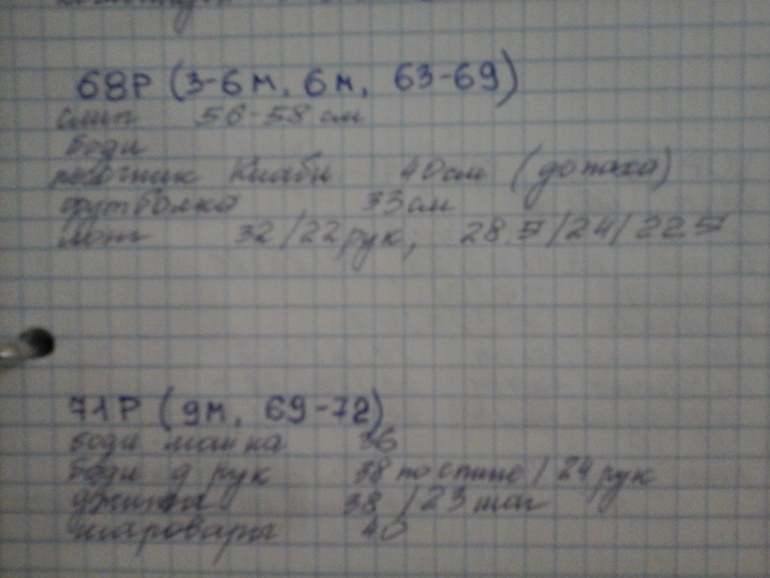 68Р (3-6 м, 6м, 63-69)
слип 56-58 см
боди
песочник Киаби 40см (до паха)
футболка 33см
32/22рук, 28.5/24/22.5
71Р (9м, 69-72)
боди майка 36
боди д рук 38 по спине/24 рук
джинсы 38/23 шаг
шаровары 40